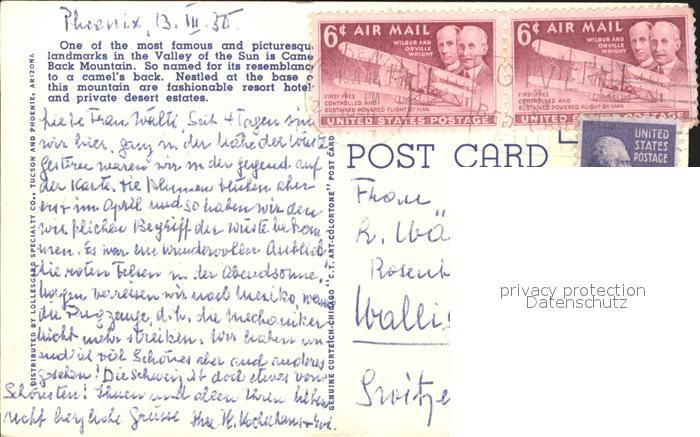 Phoenix, 13. III. 50
One of the most famous and picturesqu
landmarks in the Valley of the Sun is Came
Back Mountain. So named for its resemblanc
to a camel's back. Nestled at the base o
this mountain are fashionable resort hotel
and private desert estates.
Liebe Frau Wälti Seit 4 Tagen sind
wir hier, ganz in der Nähe der Wüste
gestern waren wir in der Gegend auf
der Karte. Die Blumen blühen aber
erst im April und so haben wir den
wirklichen Begriff der Wüste bekom
men. Es war ein wundervoller Anblick
die roten Felsen in der Abendsonne.
Morgen verreisen wir nach Mexiko, wenn
die Flugzeuge, d.h. die Mechaniker
nicht mehr streiken. Wir haben un
endlich viel Schönes aber auch anderes
gesehen! Die Schweiz ist doch etwas vom
Schönsten! Ihnen und allen Ihren Lieben
recht herzliche Grüsse Ihre
DISTRIBUTED BY LOLLESGARD SPECIALTY CO., TUCSON AND PHOENIX, ARIZONA
GENUINE CURTEICH-CHICAGO "C.T. ART-COLORTONE" POST CARD
6¢ AIR MAIL
WILBUR AND
ORVILLE
WRIGHT
FIRST FREE
CONTROLLED AND
SUSTAINED POWERED FLIGHT BY MAN
UNITED STATES POSTAGE
6¢ AIR MAIL
WILBUR AND
ORVILLE
WRIGHT
FIRST FREE
CONTROLLED AND
SUSTAINED POWERED FLIGHT BY MAN
UNITED STATES POSTAGE
UNITED
STATES
POSTAGE
POST CARD
Frau
R. Wä
Rosenb
Wallis
Switze
privacy protection
Datenschutz